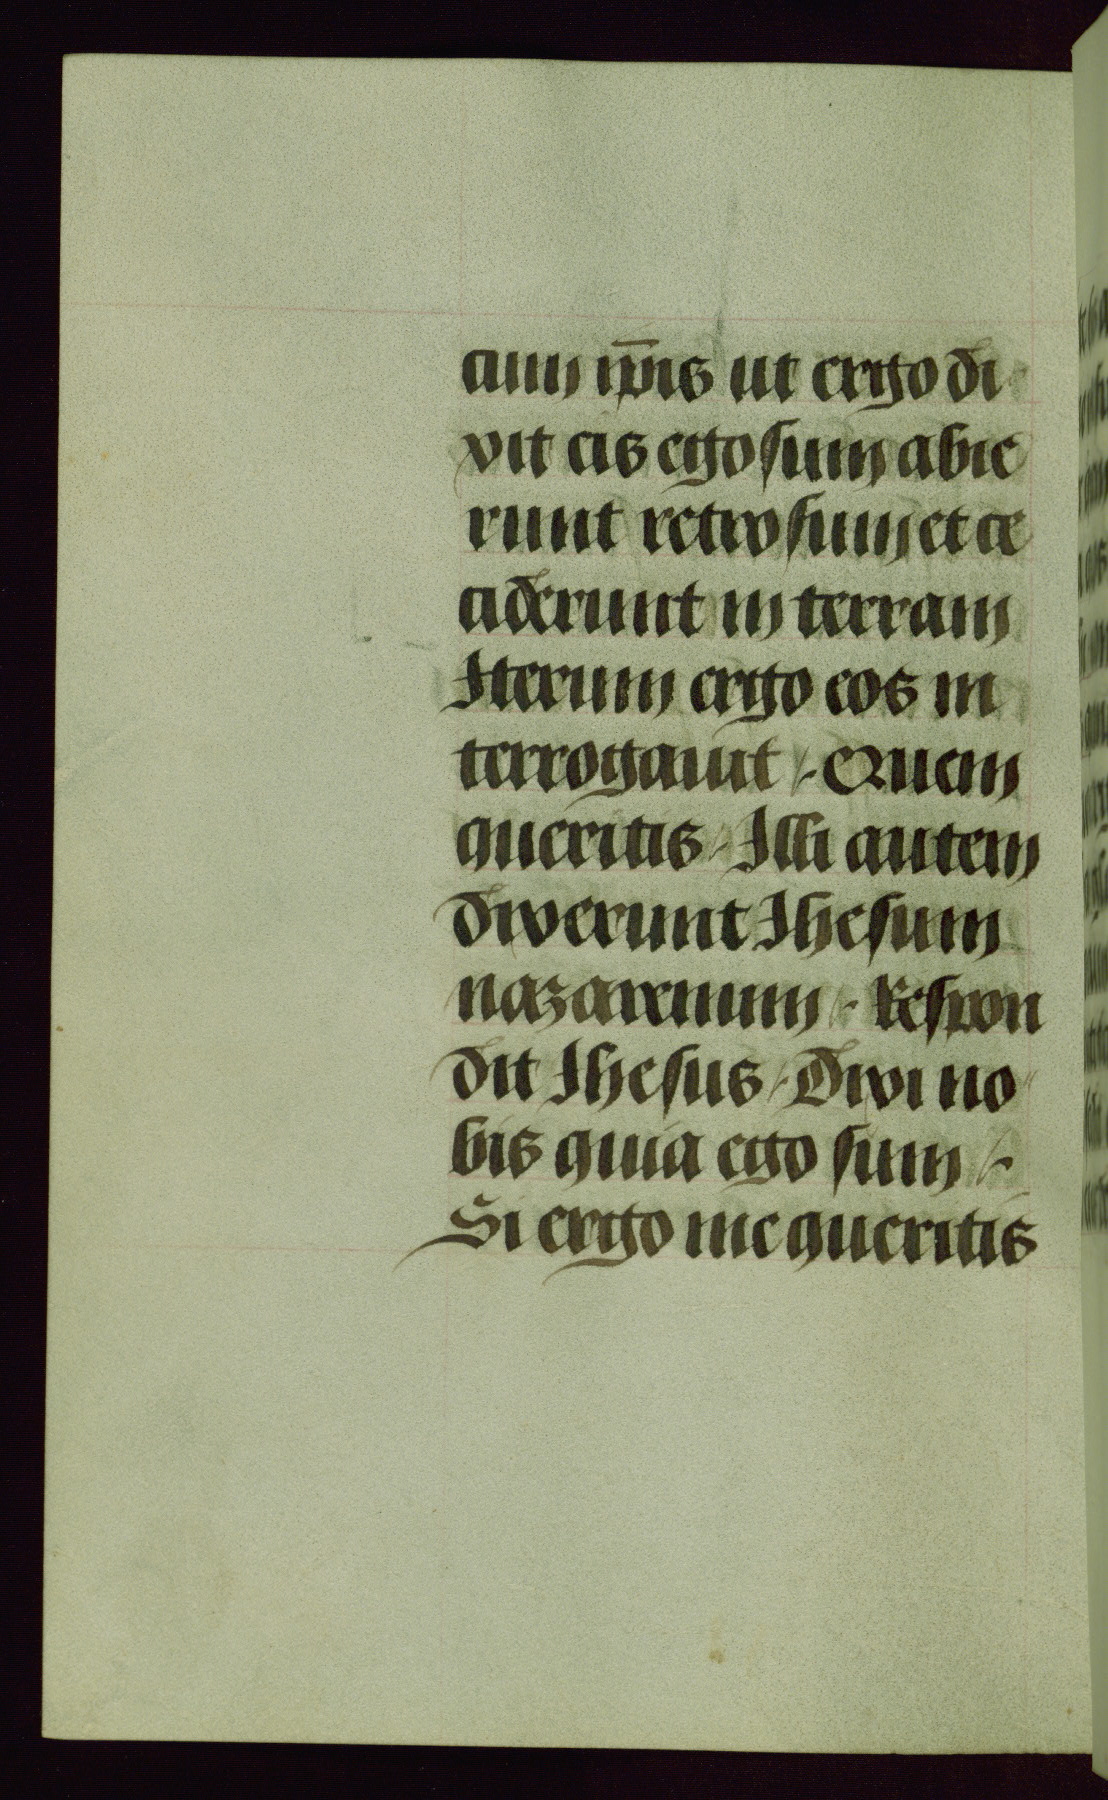 cum ip̄is ut ergo di
xit eis ego sum abie
runt retrosum et ce
ciderunt in terram
Iterum ergo eos in
terrogauit /. Quem
queritis /. Illi autem
dixerunt Ihesum
nazarenum /. Respon
dit Ihesus /. Dixi uo
bis quia ego sum /.
Si ergo me queritis